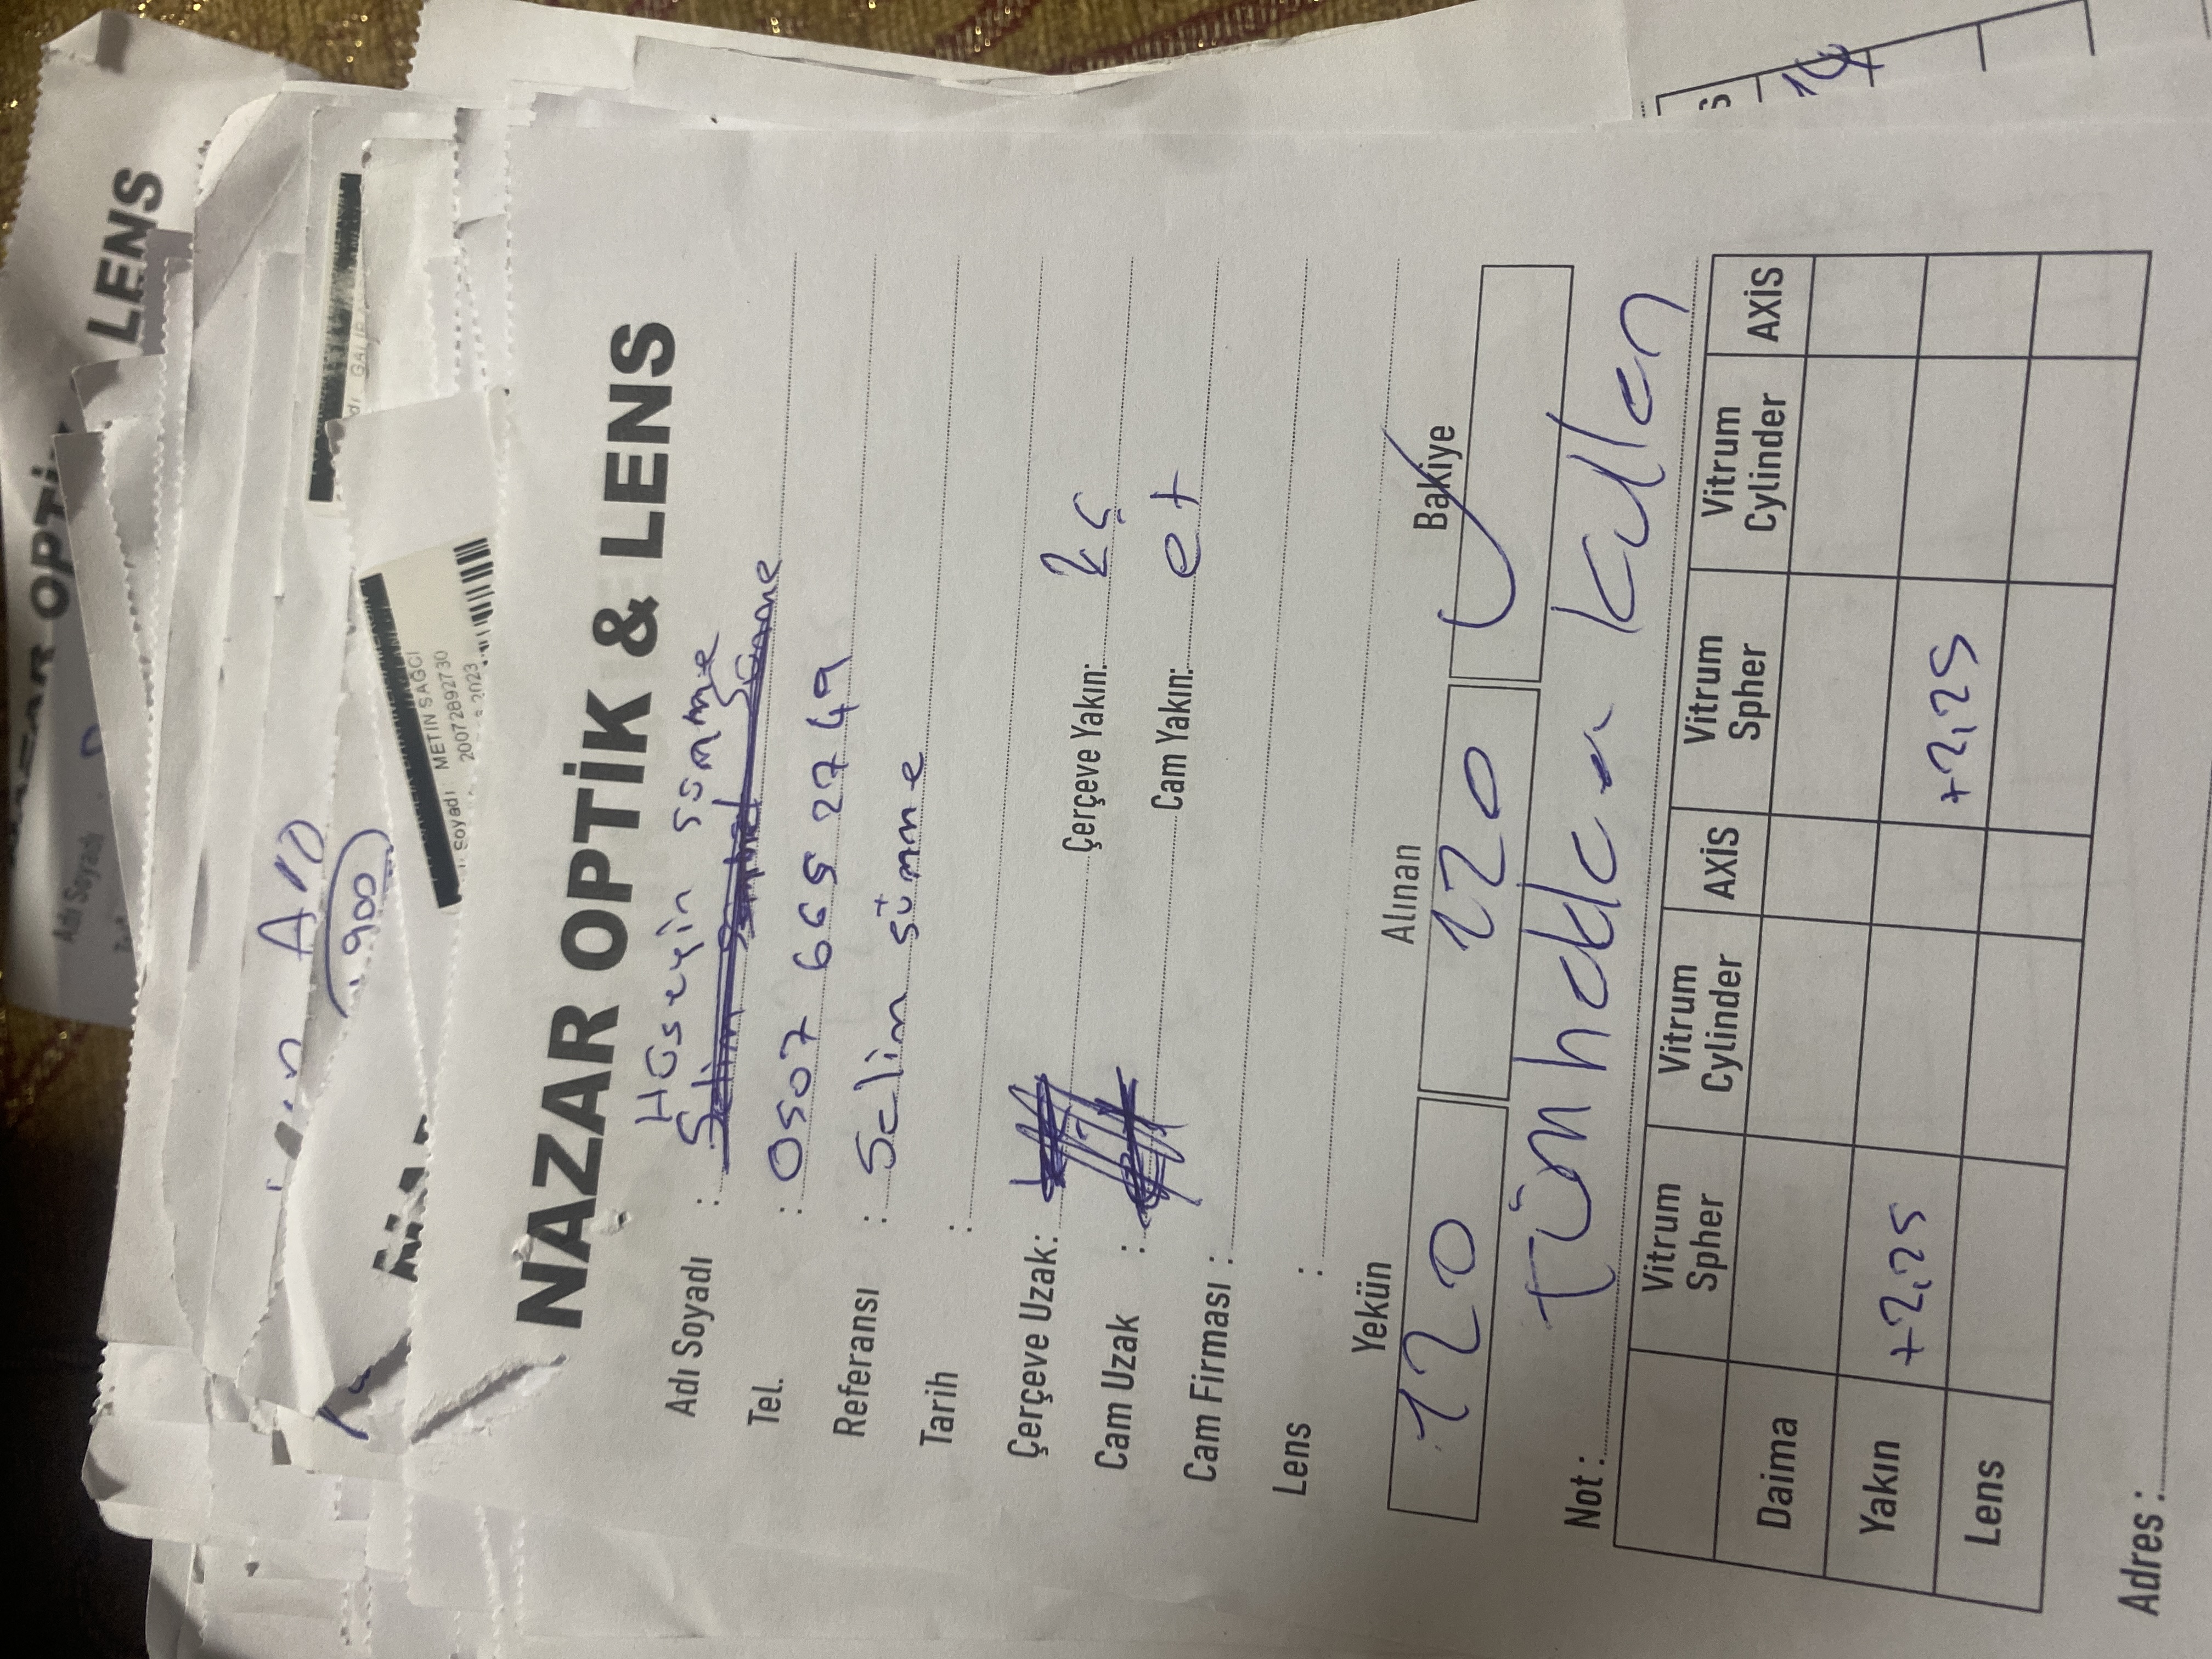 NAZAR OPTİK & LENS
Adı Soyadı
LENS
A10
900
Soyadı METİN SAĞCI
20072892730
2023
NAZAR OPTİK & LENS
Hüseyin sümme
Adı Soyadı : Selim Sümme
Tel. : 0507 665 2749
Referansı : Selim sümme
Tarih :
Çerçeve Uzak: Çerçeve Yakın: kç
Cam Uzak : Cam Yakın: et
Cam Firması :
Lens :
Yekün Alınan Bakiye
120 120
Not : tüm hakları kullan
Vitrum Spher Vitrum Cylinder AXİS Vitrum Spher Vitrum Cylinder AXİS
Daima
Yakın +2,25 +2,25
Lens
Adres :